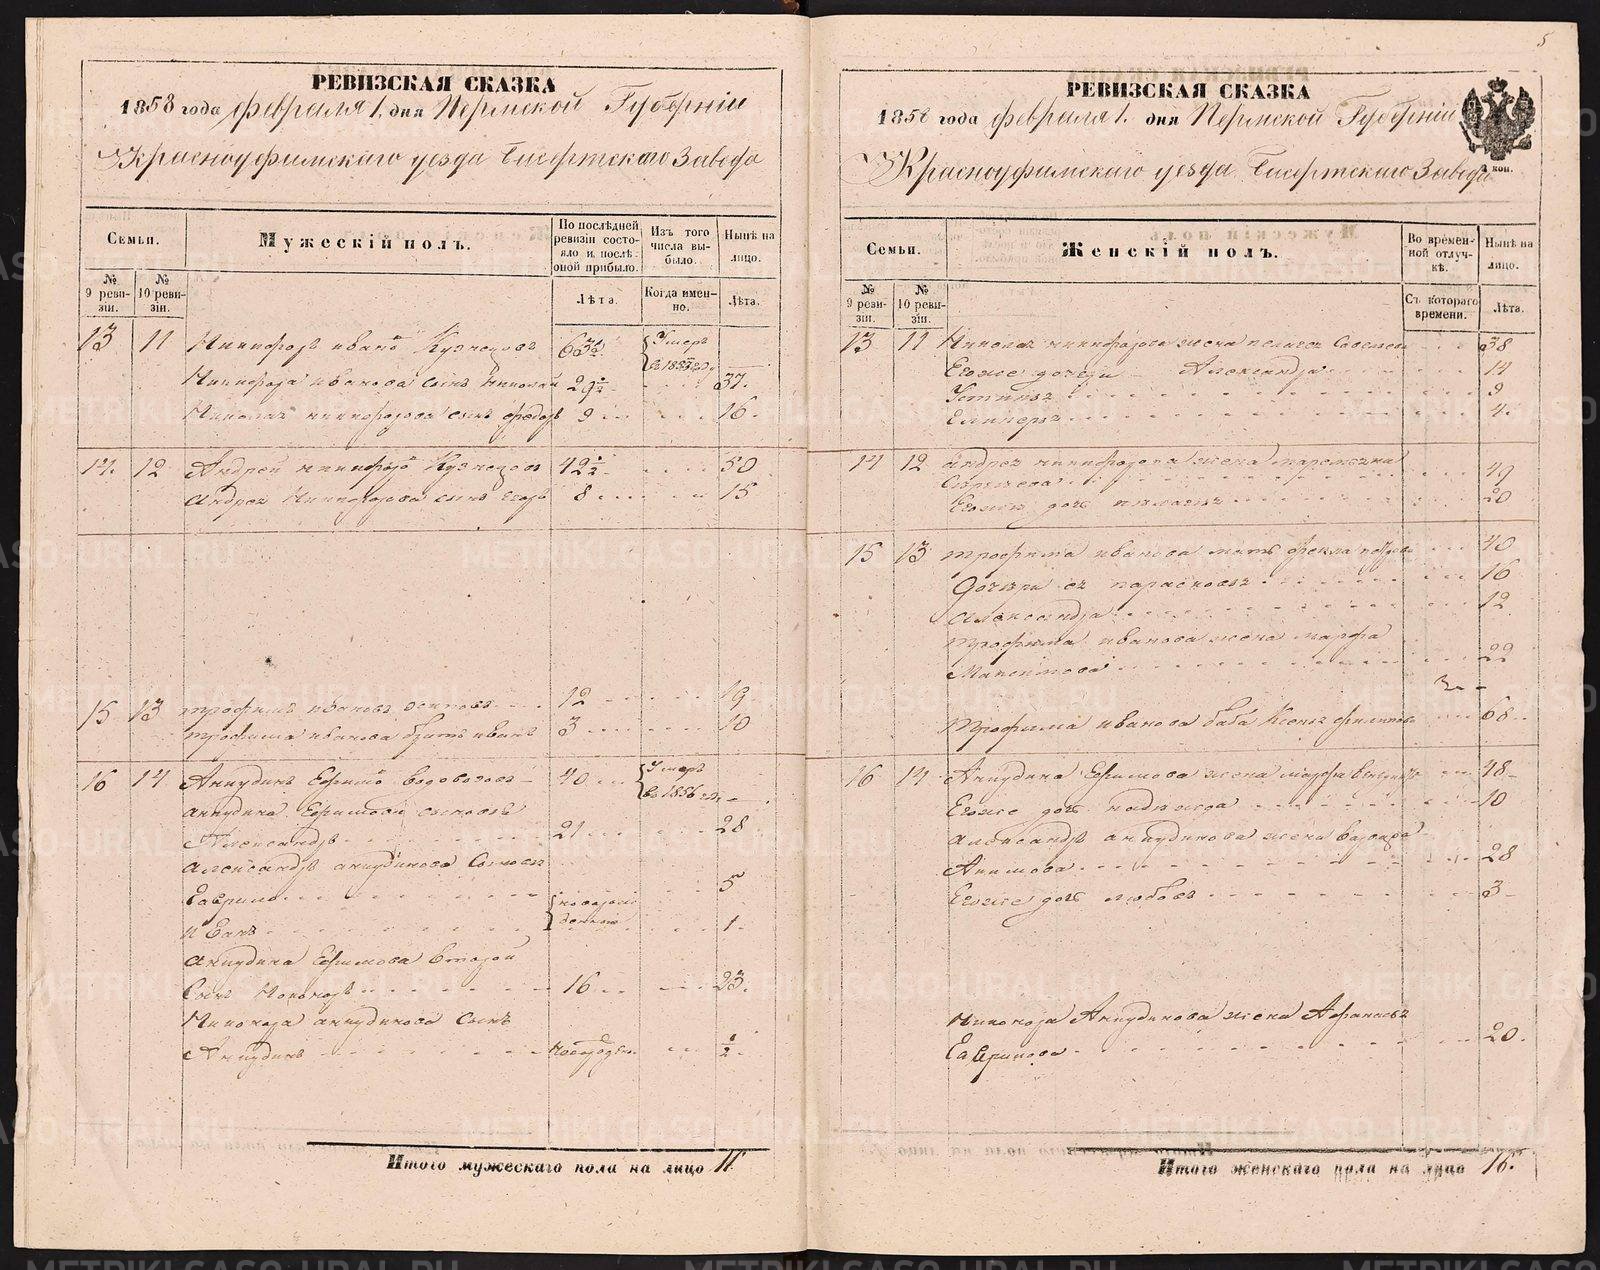 РЕВИЗСКАЯ СКАЗКА
1858 года февраля 1. дня Пермской Губернiи
Красноуфимскаго уезда Бисертскаго Завода
Семьи.
Мужескiй полъ.
По послѣдней ревизiи состояло и послѣ оной прибыло.
Изъ того числа выбыло.
Нынѣ на лицо.
№ 9 ревизiи.
№ 10 ревизiи.
Лѣта.
Когда именно.
Лѣта.
13 11 Никифоръ Ивано Кузнецовъ 63½ Умеръ
в 1857 го
Никифора иванова сынъ Николай 29½ 37.
Николая никифорова сынъ Федоръ 9 16.
14. 12 Андрей никифоро Кузнецовъ 42½ 50
Андрея Никифорова сынъ Егоръ 8 15
15 13 трофимъ ивановъ 12 19
трофима иванова братъ иванъ 3 10
16 14 Анкудинъ Ефимо Водовозовъ 40 Умеръ
в 1856 го
анкудина Ефимова сыновья
Александръ 21 28
Александра анкудинова Сыновья
Гаврило 5
новорожденные
и Еанъ 1
анкудина Ефимова второй
Сынъ Никоноръ 16 23.
Никонора анкудинова сынъ
Анкудинъ новорожден ½
Итого мужескаго пола на лицо 11.
5
РЕВИЗСКАЯ СКАЗКА
1858 года февраля 1. дня Пермской Губернiи
Красноуфимскаго уезда Бисертскаго Завода
коп.
Семьи.
Женскiй полъ.
Во временной отлучкѣ.
Нынѣ на лицо.
№ 9 ревизiи.
№ 10 ревизiи.
Съ котораго времени.
Лѣта.
13 11 Николая никифорова жена пелагея Савельева 38
Егоже дочери Александра 14
Устинья 9
Екатерина 4.
14 12 андрея никифорова жена
49
Егоже дочь 20
15 13 трофима иванова мать фекла петрова 40
Дочери ея парасковья 16
александра 12
трофима иванова жена марфа
Максимова 22
трофима иванова баба Ксенья филипова 68
16 14 Анкудина Ефимова жена марфа 48
Егоже дочь надежда 10
александра анкудинова жена варвара
Акимова 28
Егоже дочь любовь 3
Никонора Анкудинова жена Афанасья
Гаврилова 20.
Итого женскаго пола на лицо 16.
METRIKI.GASO-URAL.RU